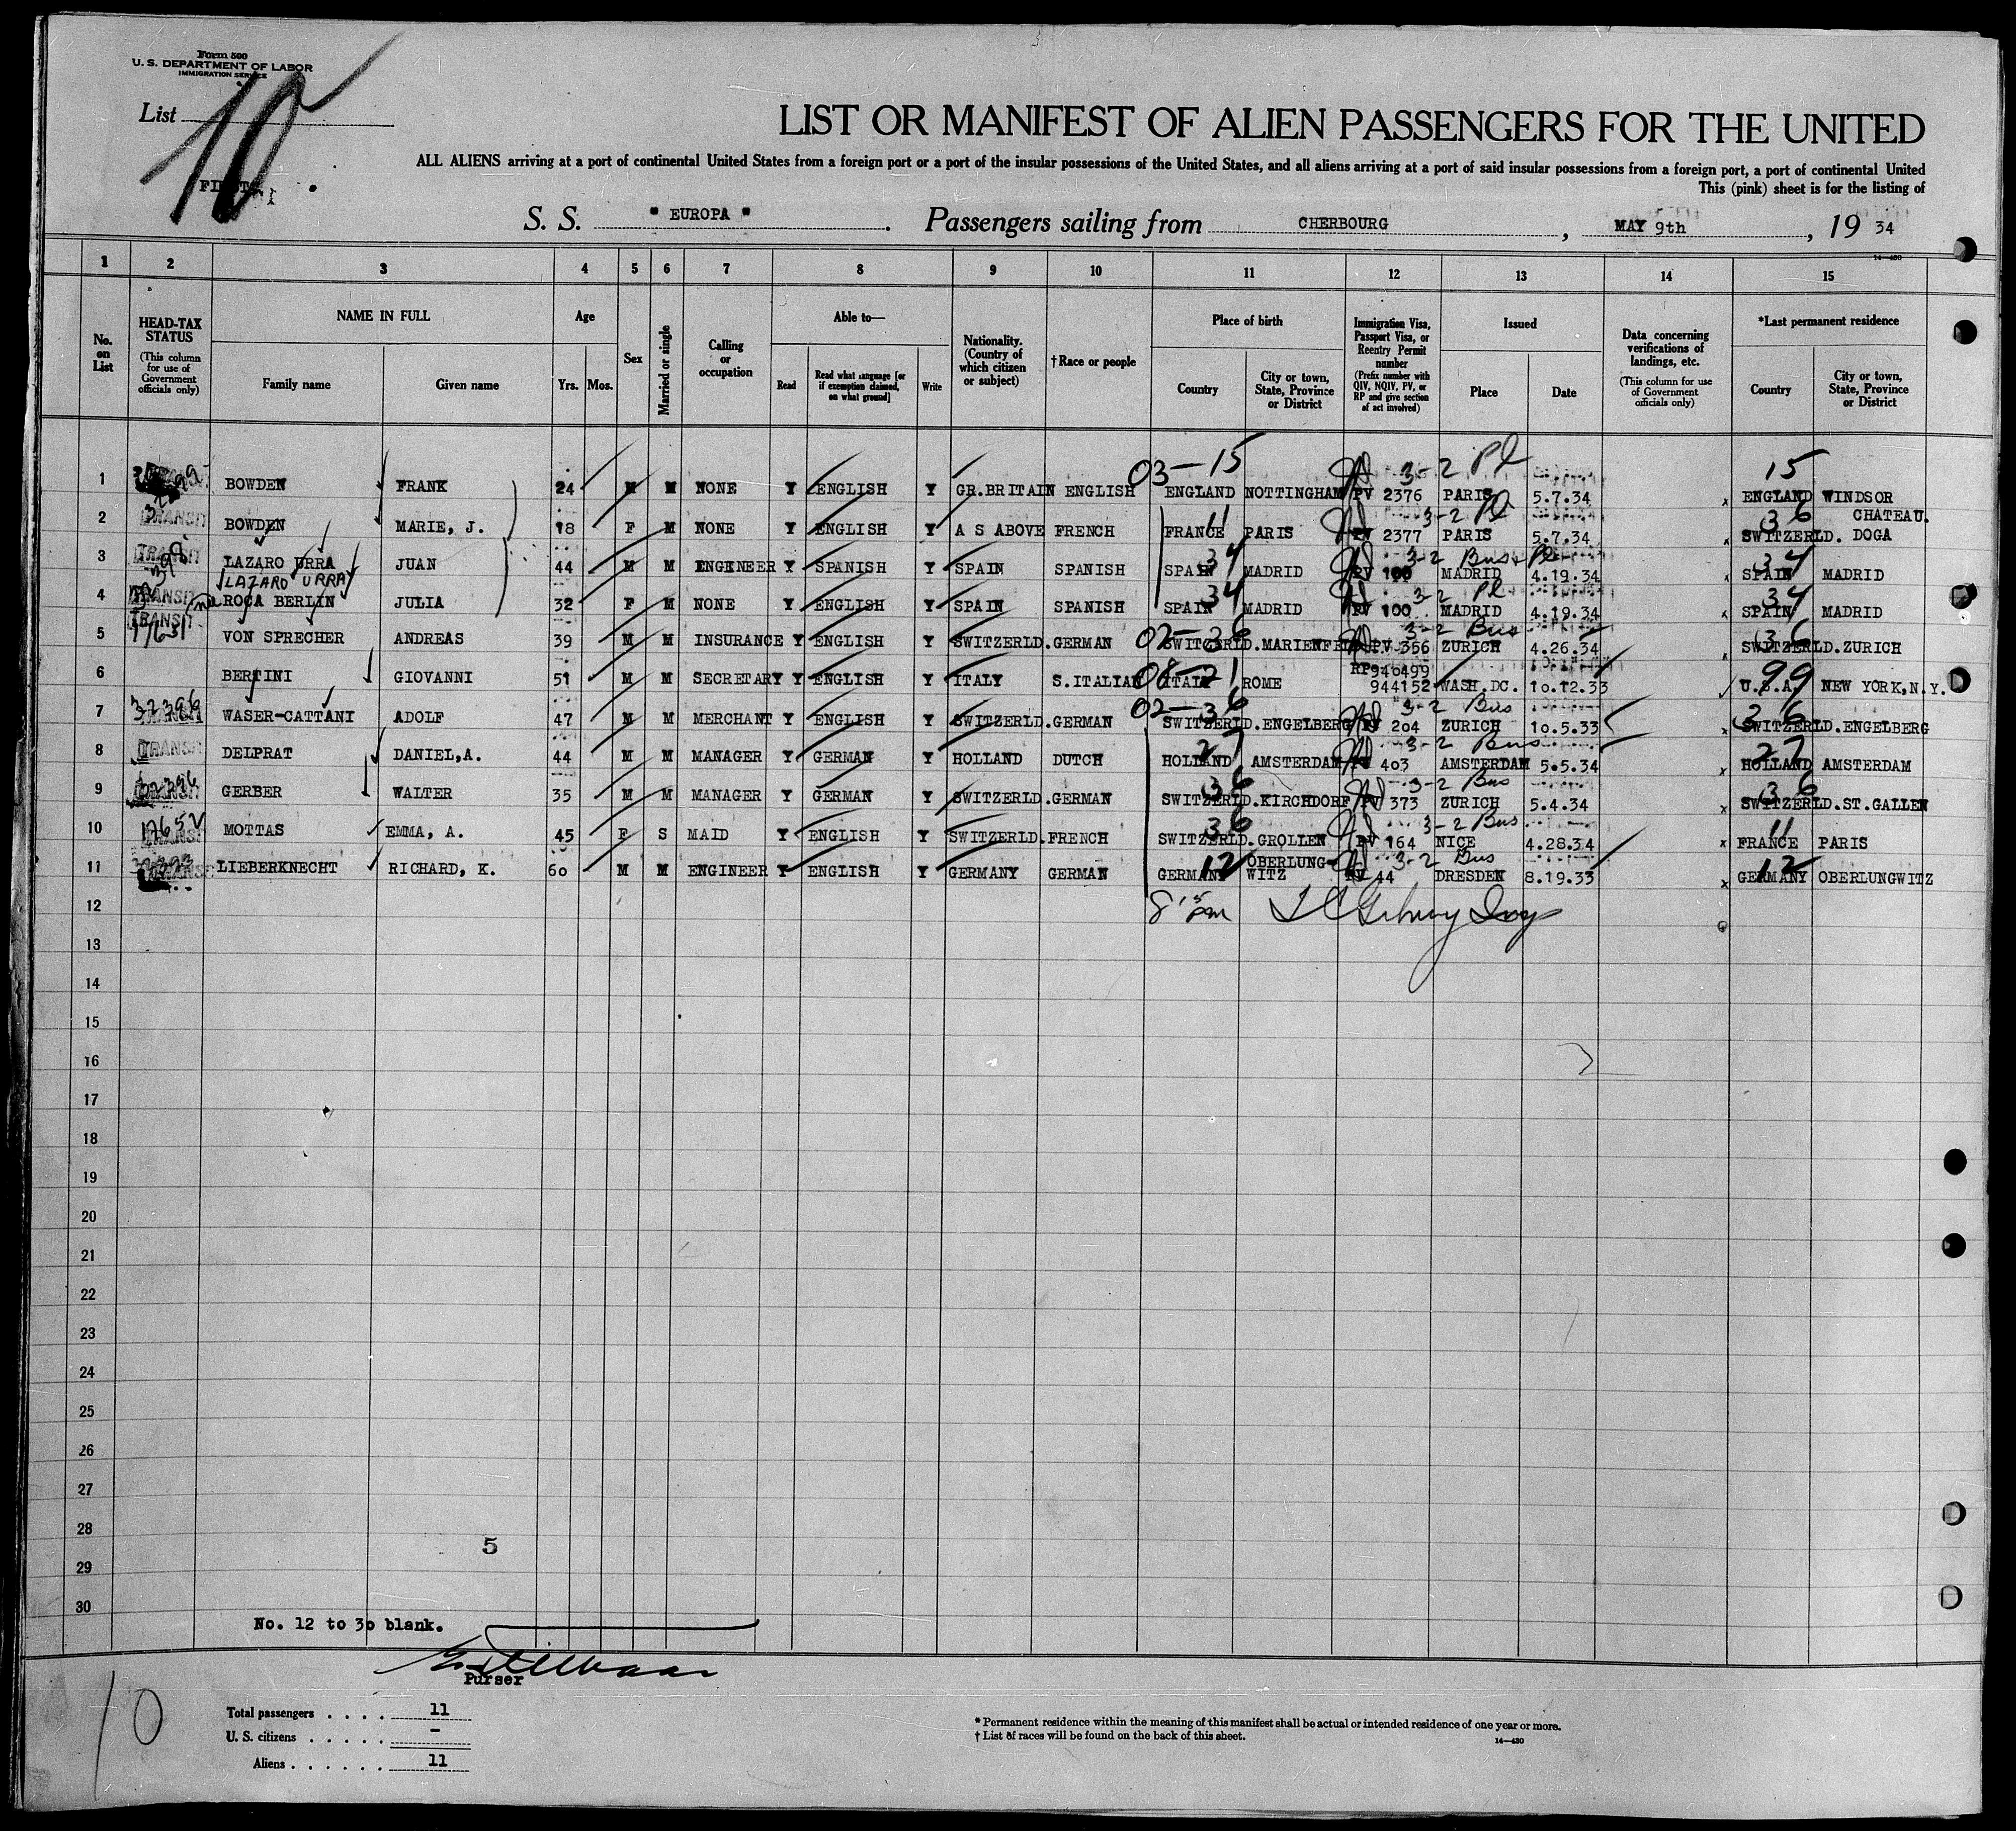 Form 500
U. S. DEPARTMENT OF LABOR
IMMIGRATION SERVICE
List 10
LIST OR MANIFEST OF ALIEN PASSENGERS FOR THE UNITED
ALL ALIENS arriving at a port of continental United States from a foreign port or a port of the insular possessions of the United States, and all aliens arriving at a port of said insular possessions from a foreign port, a port of continental United
This (pink) sheet is for the listing of
S. S. " EUROPA " . Passengers sailing from CHERBOURG , MAY 9th , 19 34
14—430
1 2 3 4 5 6 7 8 9 10 11 12 13 14 15
No. on List
HEAD-TAX STATUS (This column for use of Government officials only)
NAME IN FULL Family name Given name
Age Yrs. Mos.
Sex
Married or single
Calling or occupation
Able to— Read Read what language [or if exemption claimed, on what ground] Write
Nationality. (Country of which citizen or subject)
†Race or people
Place of birth Country City or town, State, Province or District
Immigration Visa, Passport Visa, or Reentry Permit number (Prefix number with QIV, NQIV, PV, or RP and give section of act involved)
Issued Place Date
Data concerning verifications of landings, etc. (This column for use of Government officials only)
*Last permanent residence Country City or town, State, Province or District
03-15 3-2 Pl 15
1 BOWDEN FRANK 24 M M NONE Y ENGLISH Y GR.BRITAIN ENGLISH ENGLAND NOTTINGHAM PV 2376 PARIS 5.7.34 x ENGLAND WINDSOR
11 3-2 Pl 36 CHATEAU.
2 TRANSIT BOWDEN MARIE, J. 18 F M NONE Y ENGLISH Y A S ABOVE FRENCH FRANCE PARIS PV 2377 PARIS 5.7.34 x SWITZERLD. DOGA
34 3-2 Bus & Pl 34
3 TRANSIT LAZARO URRA JUAN 44 M M ENGINEER Y SPANISH Y SPAIN SPANISH SPAIN MADRID PV 100 MADRID 4.19.34 x SPAIN MADRID
LAZARO URRA 34 3-2 Pl 34
4 TRANSIT ROCA BERLIN JULIA 32 F M NONE Y ENGLISH Y SPAIN SPANISH SPAIN MADRID PV 100 MADRID 4.19.34 x SPAIN MADRID
TRANSIT 02-36 3-2 Bus 36
5 17631 VON SPRECHER ANDREAS 39 M M INSURANCE Y ENGLISH Y SWITZERLD. GERMAN SWITZERLD. MARIENFELD PV 356 ZURICH 4.26.34 x SWITZERLD. ZURICH
21 RP 940499 99
6 BERTINI GIOVANNI 51 M M SECRETARY Y ENGLISH Y ITALY S.ITALIAN ITALY ROME 944152 WASH.DC. 10.12.33 U.S.A. NEW YORK,N.Y.
02-36 3-2 Bus 36
7 32396 WASER-CATTANI ADOLF 47 M M MERCHANT Y ENGLISH Y SWITZERLD. GERMAN SWITZERLD. ENGELBERG PV 204 ZURICH 10.5.33 x SWITZERLD. ENGELBERG
27 3-2 Bus 27
8 TRANSIT DELPRAT DANIEL,A. 44 M M MANAGER Y GERMAN Y HOLLAND DUTCH HOLLAND AMSTERDAM PV 403 AMSTERDAM 5.5.34 x HOLLAND AMSTERDAM
36 3-2 Bus 36
9 GERBER WALTER 35 M M MANAGER Y GERMAN Y SWITZERLD. GERMAN SWITZERLD. KIRCHDORF PV 373 ZURICH 5.4.34 x SWITZERLD. ST.GALLEN
36 3-2 Bus 11
10 MOTTAS EMMA, A. 45 F S MAID Y ENGLISH Y SWITZERLD. FRENCH SWITZERLD. GROLLEN PV 164 NICE 4.28.34 x FRANCE PARIS
12 OBERLUNG- 3-2 Bus 12
11 LIEBERKNECHT RICHARD, K. 60 M M ENGINEER Y ENGLISH Y GERMANY GERMAN GERMANY WITZ PV 44 DRESDEN 8.19.33 x GERMANY OBERLUNGWITZ
12
13
14
15
16
17
18
19
20
21
22
23
24
25
26
27
28
5
29
30
No. 12 to 30 blank.
Purser
10
Total passengers . . . . 11
U. S. citizens . . . . . -
Aliens . . . . . . 11
* Permanent residence within the meaning of this manifest shall be actual or intended residence of one year or more.
† List of races will be found on the back of this sheet.
14—430